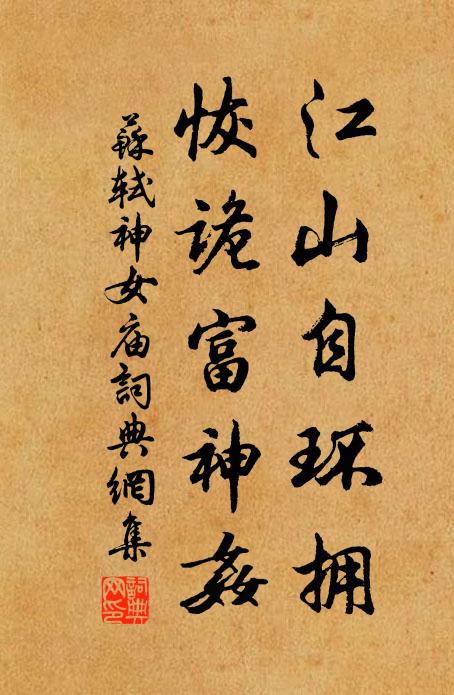 江山自环拥
恢詭富神姦
蘇軾神女庙詞典網集
詞典网印